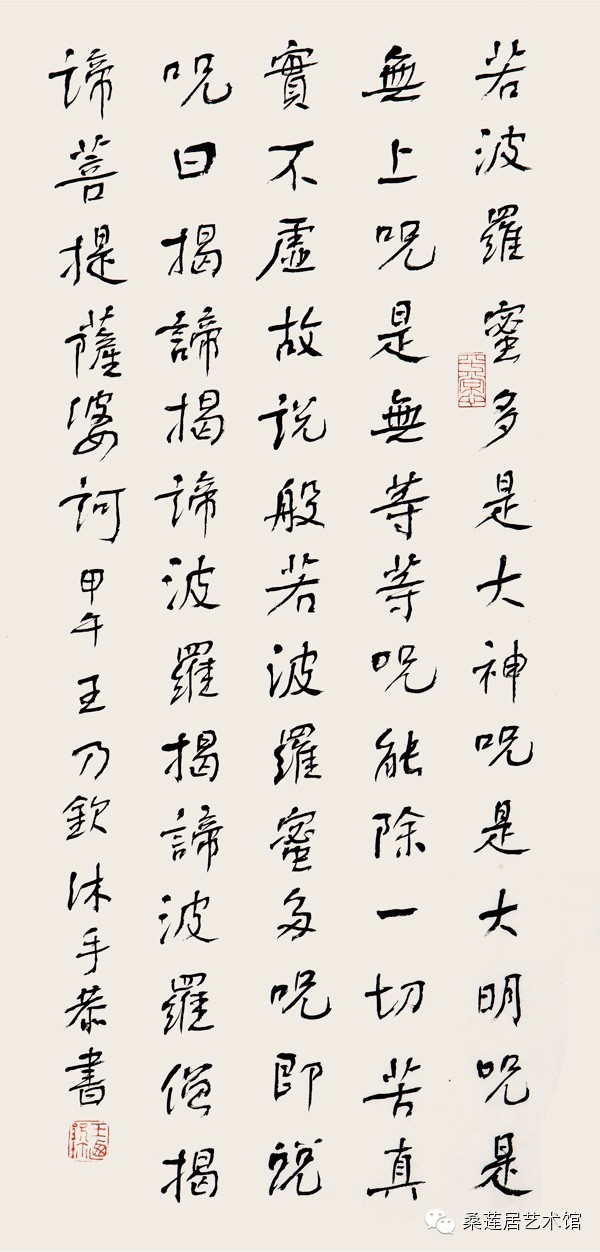 若波羅蜜多是大神咒是大明咒是
無上呪是無等等呪能除一切苦真
實不虛故説般若波羅蜜多呪即説
呪曰揭諦揭諦波羅揭諦波羅僧揭
諦菩提薩婆訶甲午王乃欽沐手恭書
桑莲居艺术馆